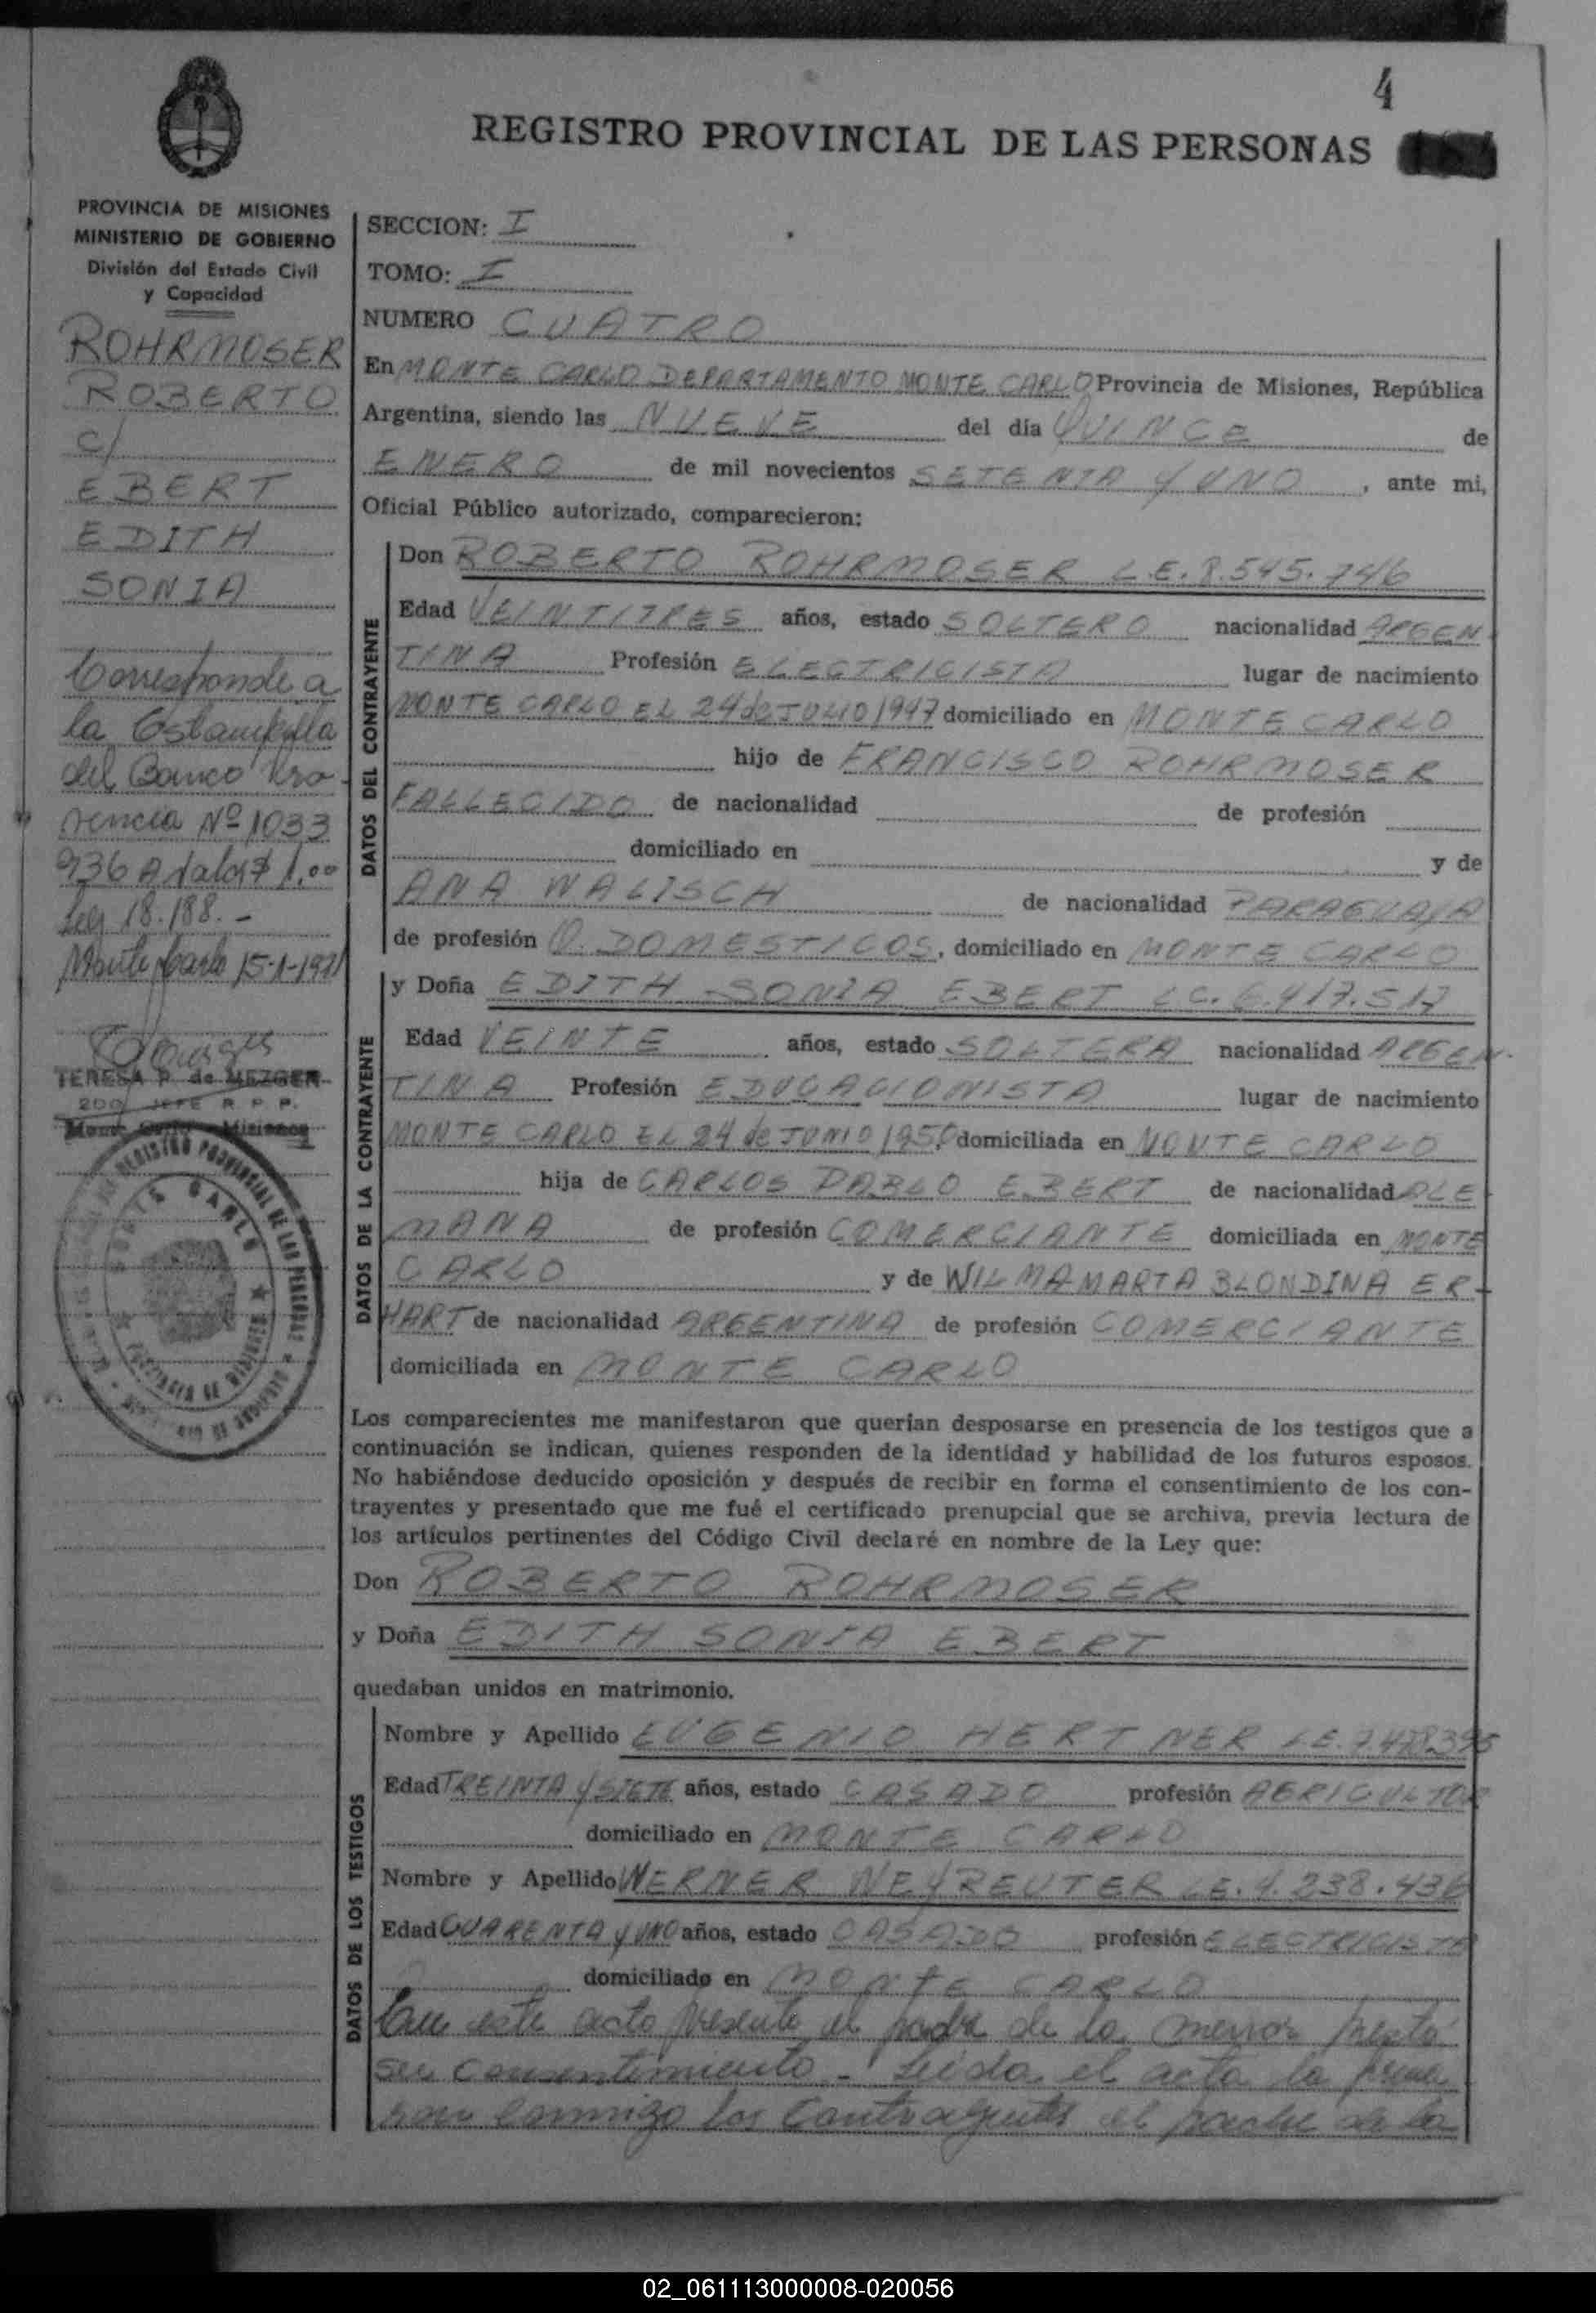 4
REGISTRO PROVINCIAL DE LAS PERSONAS
PROVINCIA DE MISIONES
MINISTERIO DE GOBIERNO
División del Estado Civil
y Capacidad
ROHRMOSER
ROBERTO
c/
EBERT
EDITH
SONIA
Corresponde a
la Estampilla
del Banco
Nº 1033
936 A Valor $ 1,00
Ley 18.188.-
Monte Carlo 15-1-1971
TERESA P. de MEZGER
JEFE R. P. P.
Monte Carlo - Misiones
SECCION: I
TOMO: I
NUMERO CUATRO
En MONTE CARLO DEPARTAMENTO MONTE CARLO Provincia de Misiones, República
Argentina, siendo las NUEVE del día QUINCE de
ENERO de mil novecientos SETENTA Y UNO , ante mi,
Oficial Público autorizado, comparecieron:
DATOS DEL CONTRAYENTE
Don ROBERTO ROHRMOSER L.E. 8.545.746
Edad VEINTITRES años, estado SOLTERO nacionalidad ARGEN
TINA Profesión ELECTRICISTA lugar de nacimiento
MONTE CARLO EL 24 de JULIO 1947 domiciliado en MONTE CARLO
hijo de FRANCISCO ROHRMOSER
FALLECIDO de nacionalidad de profesión
domiciliado en y de
ANA WALISCH de nacionalidad PARAGUAYA
de profesión Q. DOMESTICOS, domiciliado en MONTE CARLO
DATOS DE LA CONTRAYENTE
y Doña EDITH SONIA EBERT L.C. 6.417.517
Edad VEINTE años, estado SOLTERA nacionalidad ARGEN-
TINA Profesión EDUCACIONISTA lugar de nacimiento
MONTE CARLO EL 24 de JUNIO 1950 domiciliada en MONTE CARLO
hija de CARLOS PABLO EBERT de nacionalidad ALE
MANA de profesión COMERCIANTE domiciliada en MONTE
CARLO y de WILMA MARTA BLONDINA ER-
HART de nacionalidad ARGENTINA de profesión COMERCIANTE
domiciliada en MONTE CARLO
Los comparecientes me manifestaron que querían desposarse en presencia de los testigos que a
continuación se indican, quienes responden de la identidad y habilidad de los futuros esposos.
No habiéndose deducido oposición y después de recibir en forma el consentimiento de los con-
trayentes y presentado que me fué el certificado prenupcial que se archiva, previa lectura de
los artículos pertinentes del Código Civil declaré en nombre de la Ley que:
Don ROBERTO ROHRMOSER
y Doña EDITH SONIA EBERT
quedaban unidos en matrimonio.
DATOS DE LOS TESTIGOS
Nombre y Apellido EUGENIO HERTNER L.E. 7.478.395
Edad TREINTA Y SIETE años, estado CASADO profesión AGRICULTOR
domiciliado en MONTE CARLO
Nombre y Apellido WERNER NEYREUTER L.E. 4.238.436
Edad CUARENTA Y UNO años, estado CASADO profesión ELECTRICISTA
domiciliado en MONTE CARLO
En este acto presente el padre de la menor prestó
su consentimiento - Leida el acta la firma
con conmigo los Contrayentes el padre de la
02_061113000008-020056